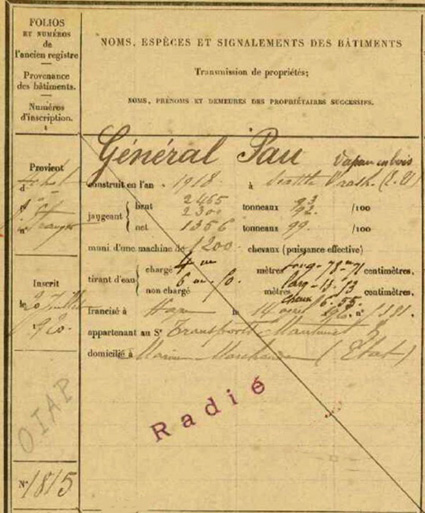 FOLIOS
ET NUMÉROS
de
l'ancien registre
Provenance
des bâtiments.
Numéros
d'inscription.
1
NOMS, ESPÈCES ET SIGNALEMENTS DES BÂTIMENTS
Transmission de propriétés;
NOMS, PRÉNOMS ET DEMEURES DES PROPRIÉTAIRES SUCCESSIFS.
Général Pau vapeur en bois
Provient
d
f
n°
construit en l'an 1918 à Seattle Wash. (E.U)
jaugeant
brut 2465 tonneaux 93 /100
2300 92
net 1356 tonneaux 99 /100
muni d'une machine de 1200 chevaux (puissance effective)
tirant d'eau
chargé mètres centimètres.
long - 78 - 71
non chargé 6 m. 50 mètres centimètres.
larg - 13 - 13
creux
Inscrit
le 20
francisé à le n°
appartenant au Sr Transports Maritimes
domicilié à Marine Marchande (État)
Radié
OIAP
N° 1815